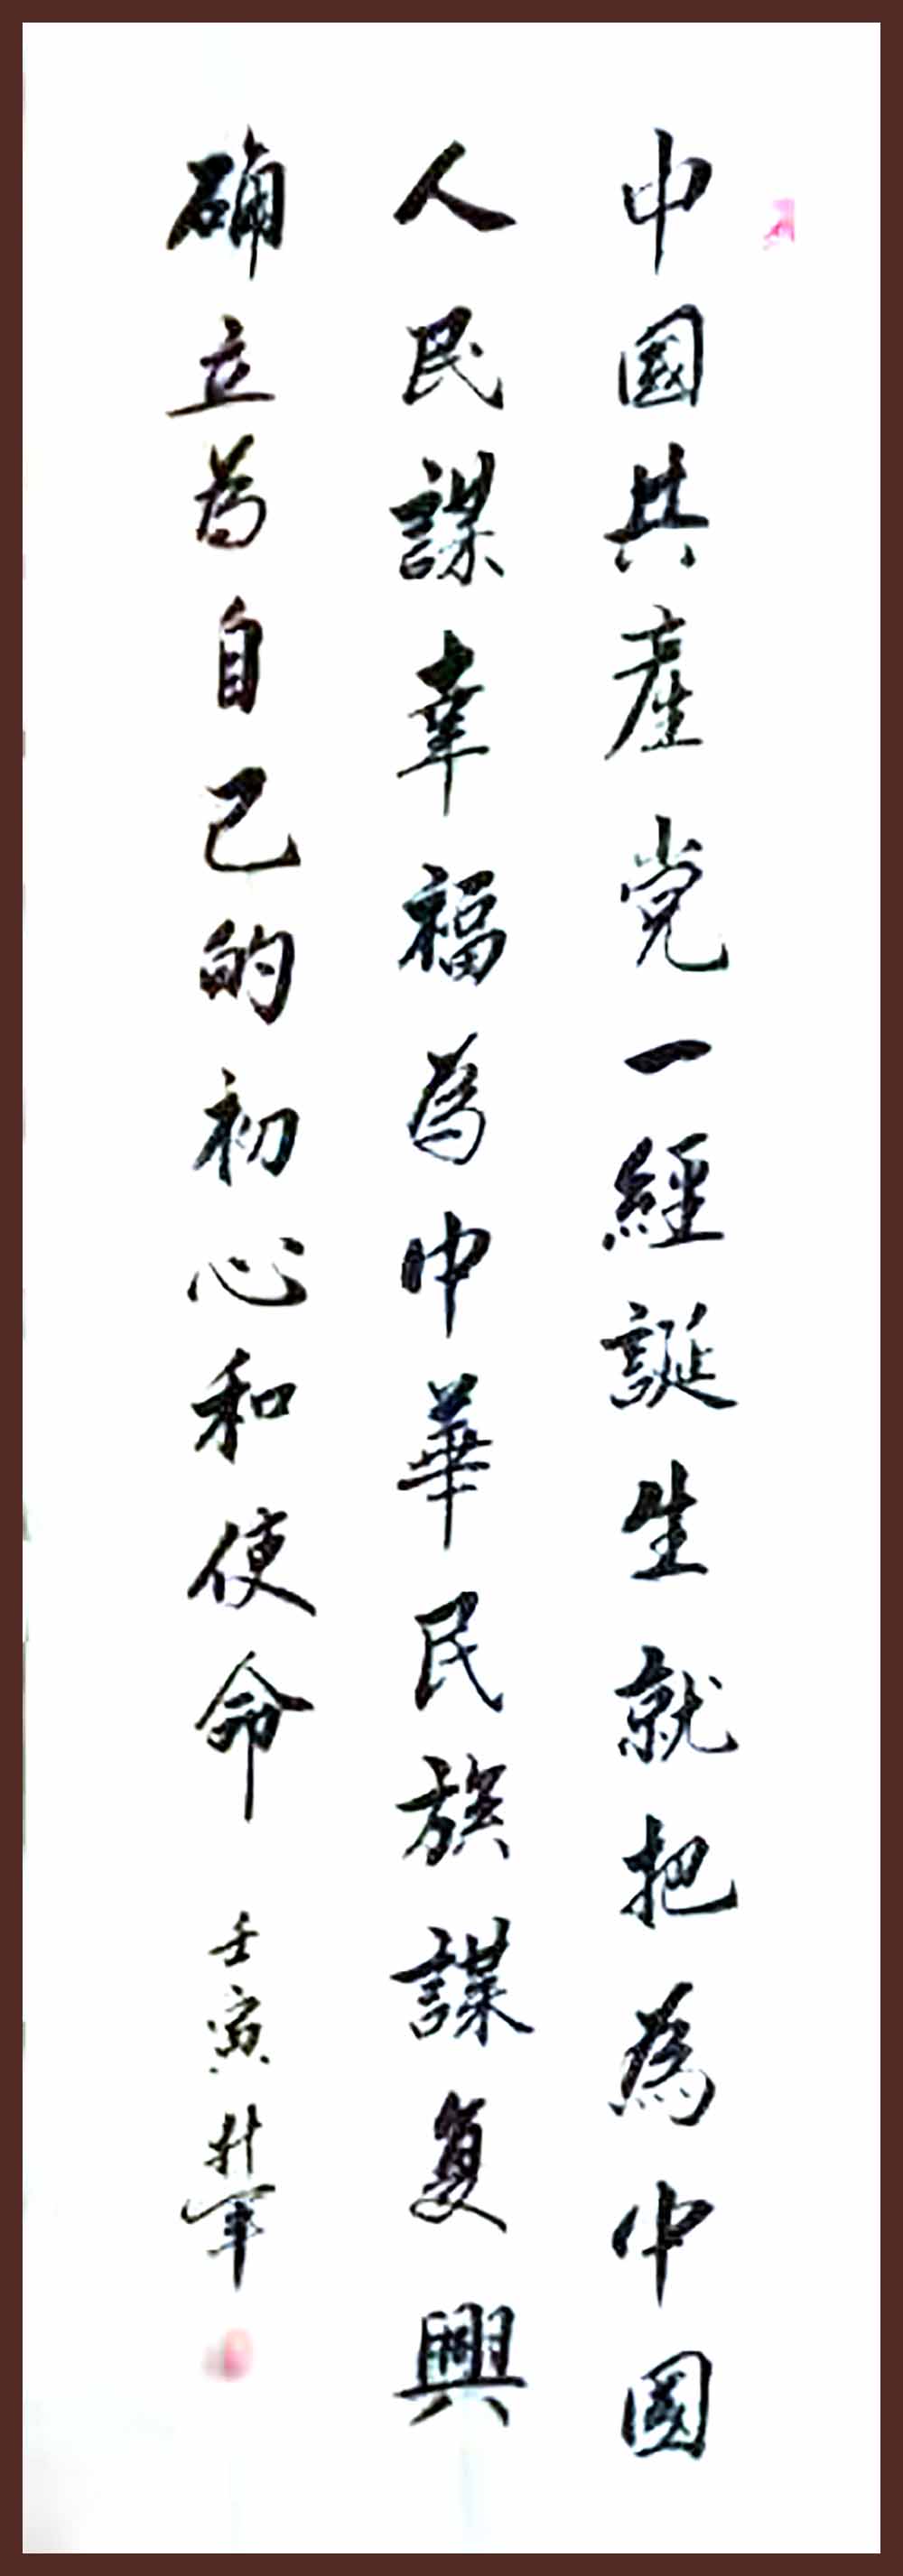 中國共產党一經誕生就把為中國
人民謀幸福為中華民族謀复興
确立為自己的初心和使命
壬寅 升軍